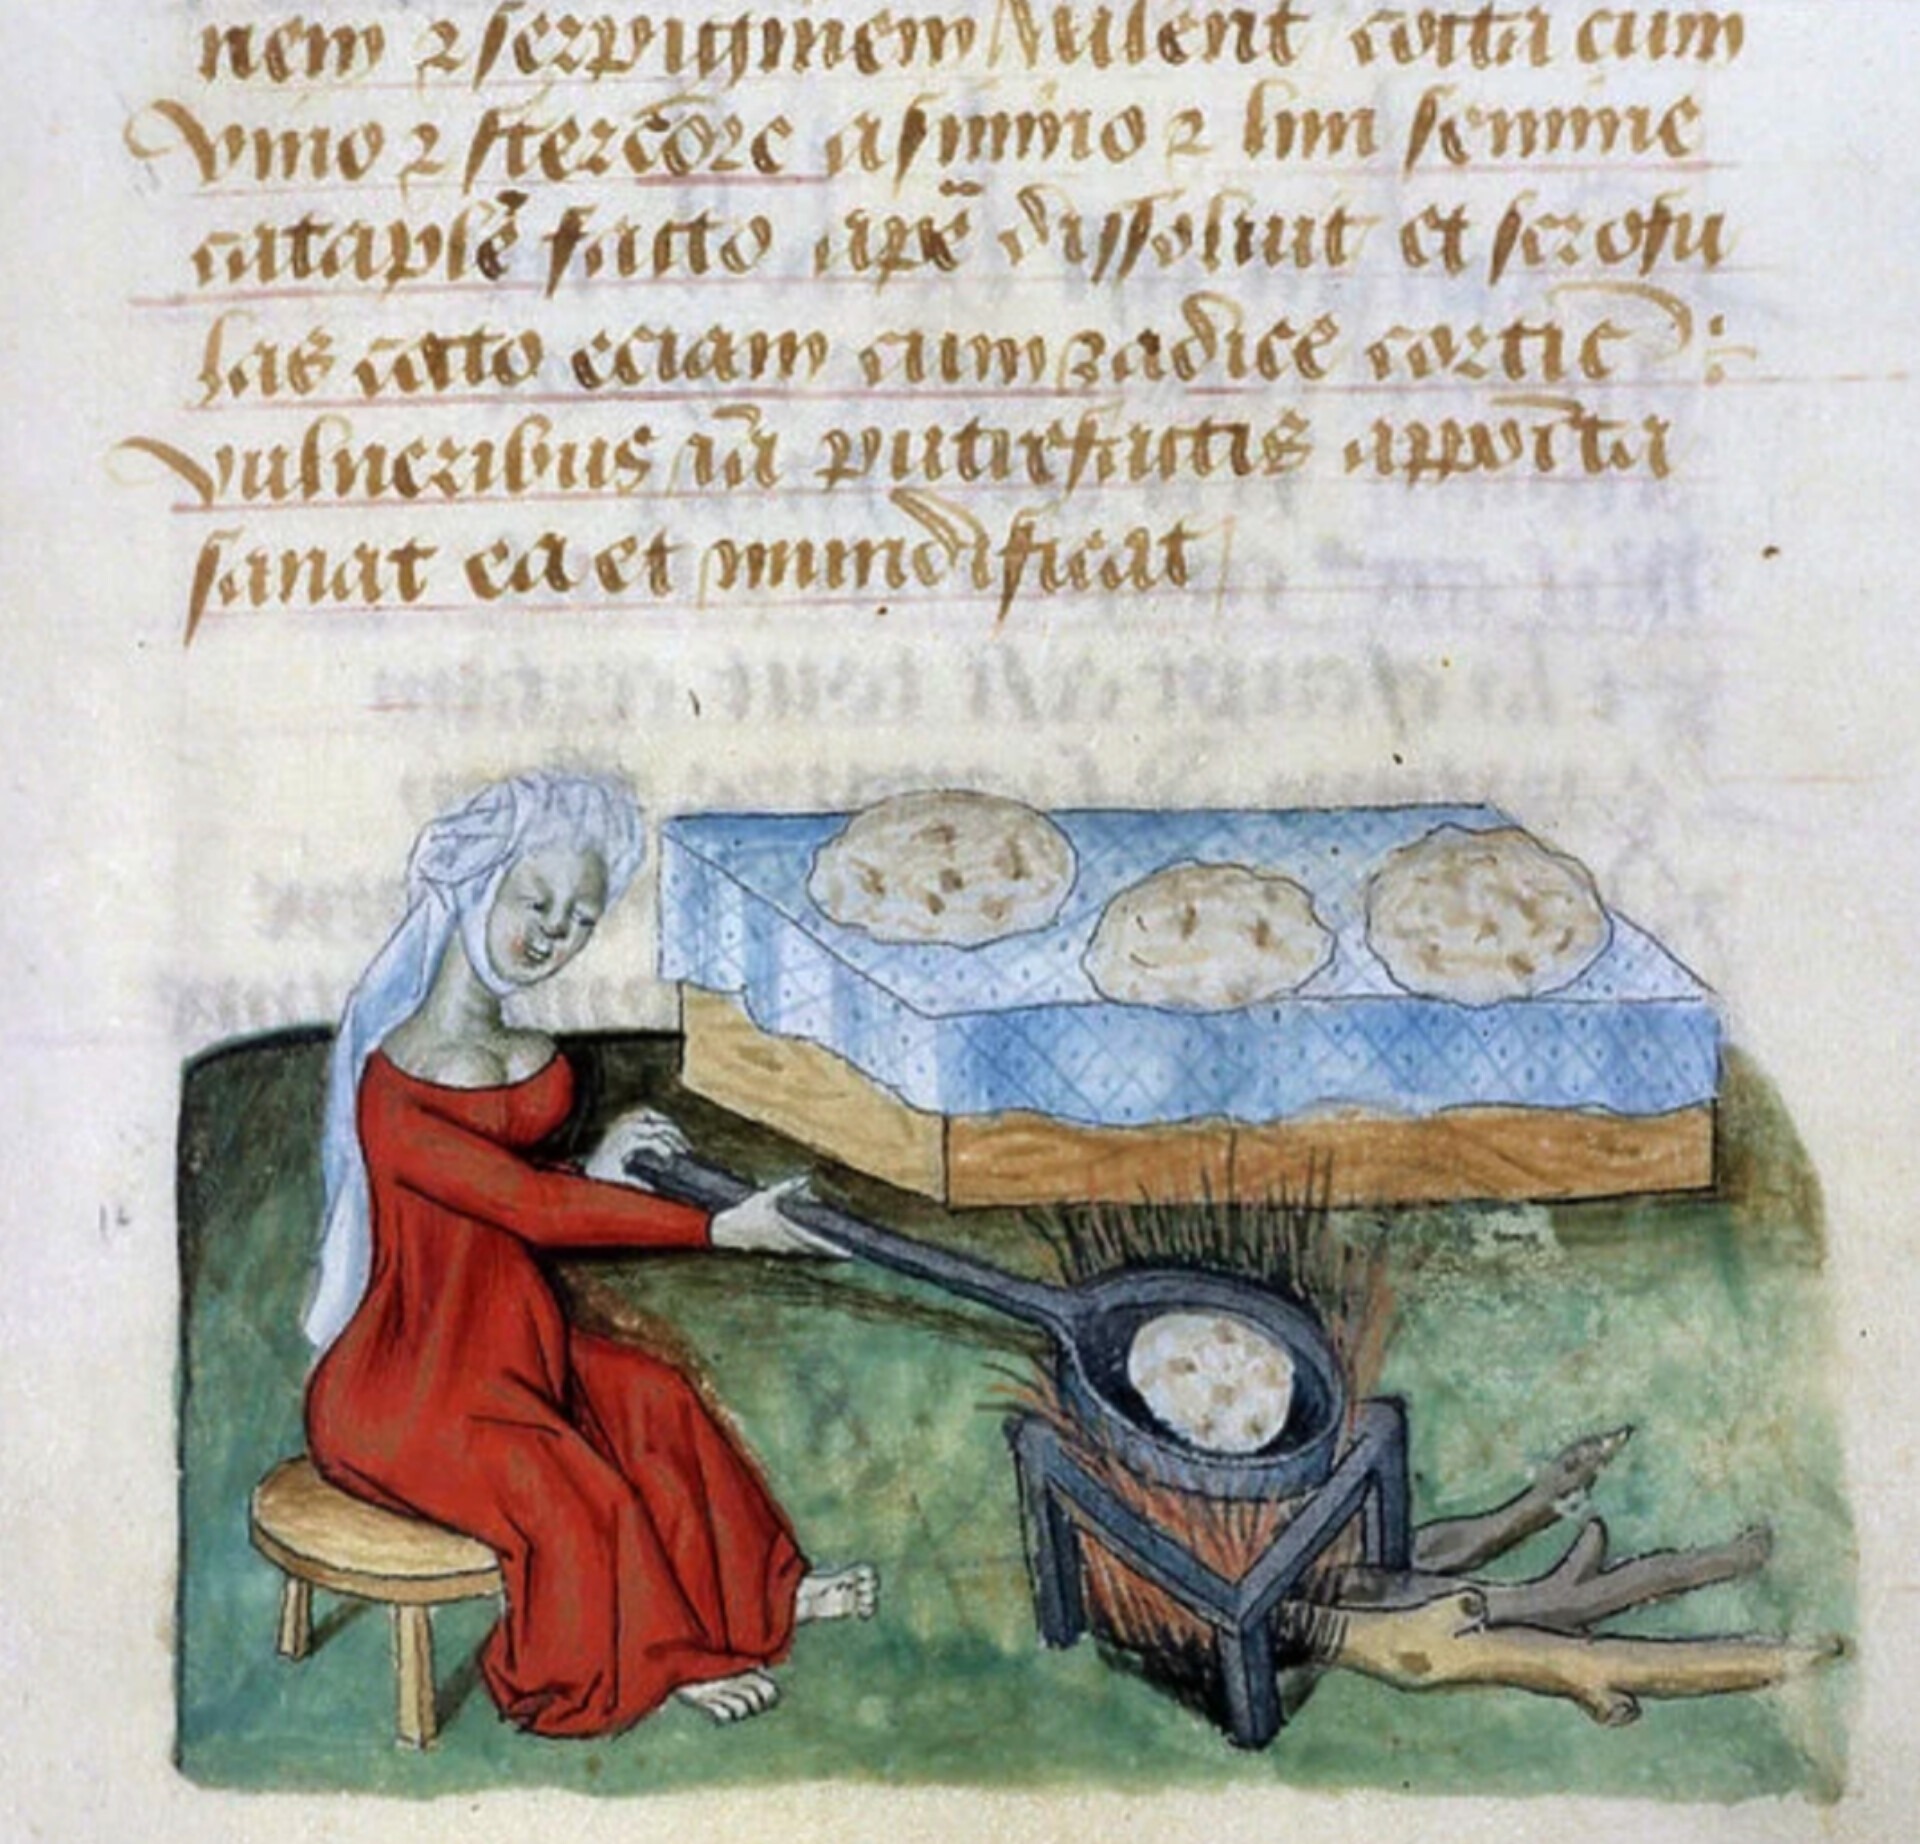 nem ⁊ serpiginem Valent cocta cum
vino ⁊ stercore asinino ⁊ lini semine
cataplẽ facto apẽ dissoluit et scrofu
las cocto eciam cum radice cortic
vulneribus iã putrefactis appoĩta
sanat ea et mundificat